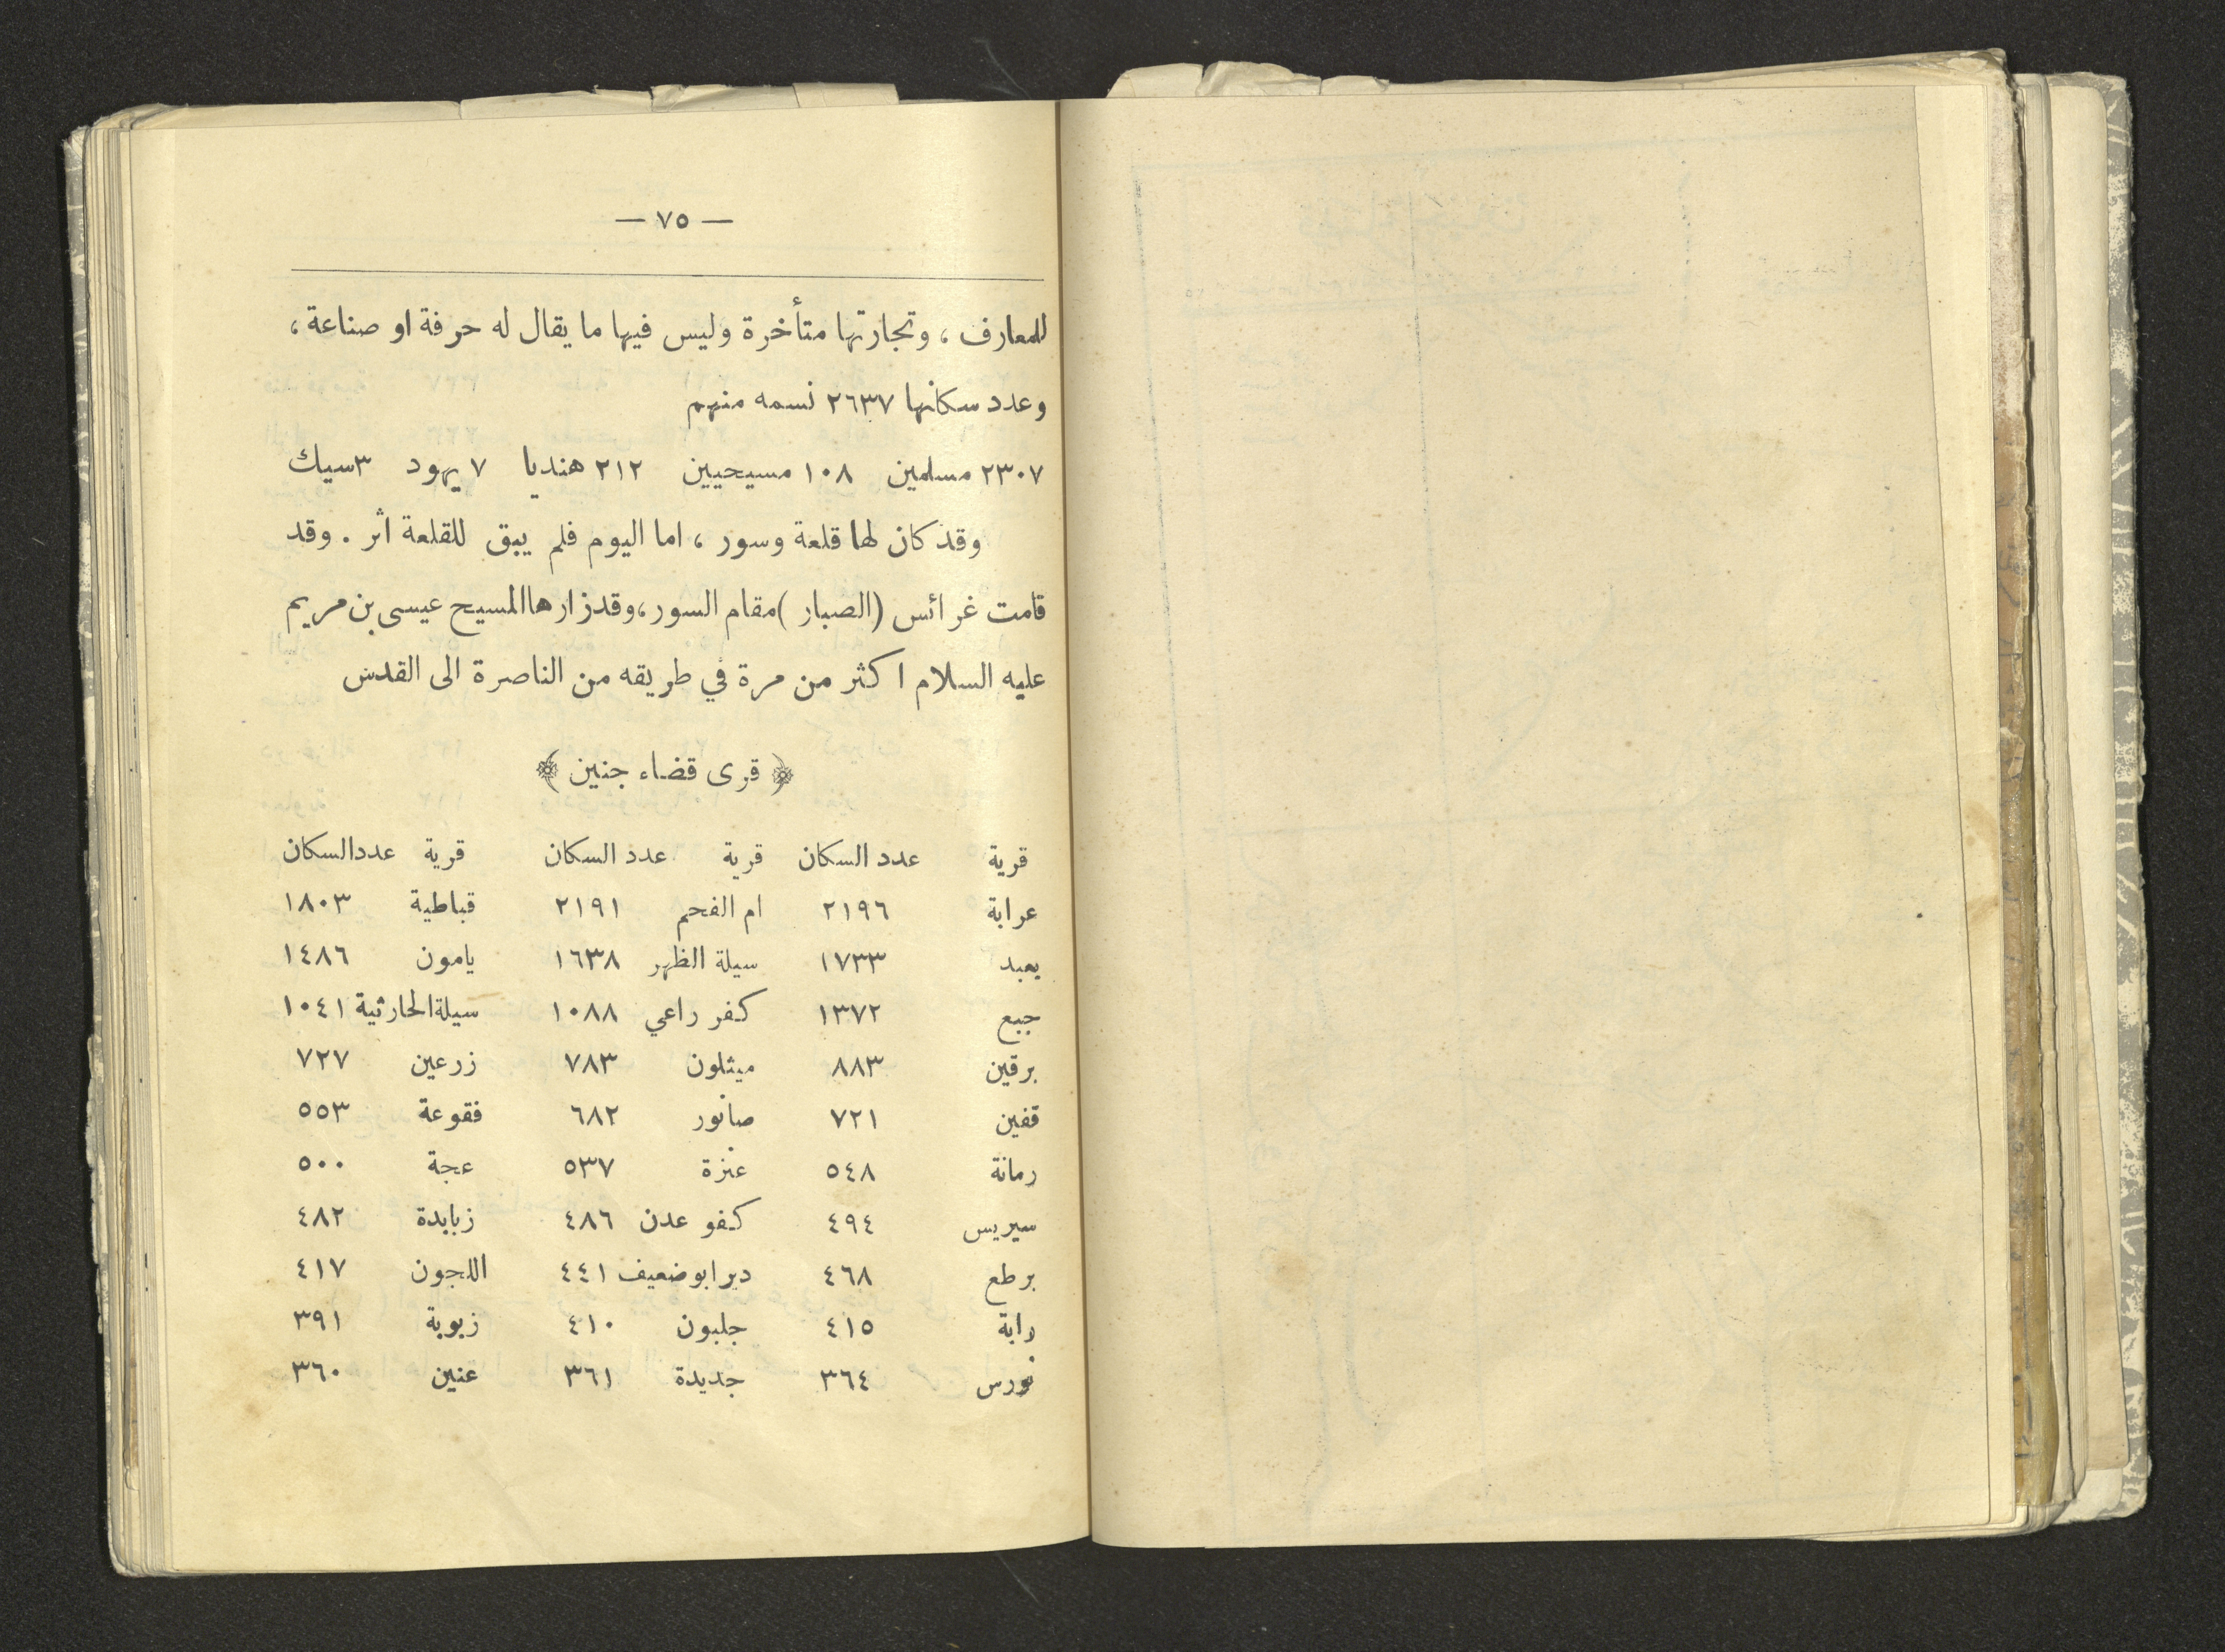 — ٧٥ —
للمعارف ، وتجارتها متأخرة وليس فيها ما يقال له حرفة او صناعة ،
وعدد سكانها ٢٦٣٧ نسمه منهم
٢٣٠٧ مسلمين ١٠٨ مسيحيين ٢١٢ هنديا ٧ يهود ٣ سيك
وقد كان لها قلعة وسور ، اما اليوم فلم يبق للقلعة اثر . وقد
قامت غرائس (الصبار) مقام السور، وقد زارها المسيح عيسى بن مريم
عليه السلام اكثر من مرة في طريقه من الناصرة الى القدس
﴿ قرى قضاء جنين ﴾
قرية عدد السكان قرية عدد السكان قرية عدد السكان
عرابة ٢١٩٦ ام الفحم ٢١٩١ قباطية ١٨٠٣
يعبد ١٧٣٣ سيلة الظهر ١٦٣٨ يامون ١٤٨٦
جبع ١٣٧٢ كفر راعي ١٠٨٨ سيلة الحارثية ١٠٤١
برقين ٨٨٣ ميثلون ٧٨٣ زرعين ٧٢٧
قفين ٧٢١ صانور ٦٨٢ فقوعة ٥٥٣
رمانة ٥٤٨ عنزة ٥٣٧ عجة ٥٠٠
سيريس ٤٩٤ كفو عدن ٤٨٦ زبابدة ٤٨٢
برطع ٤٦٨ دير ابو ضعيف ٤٤١ اللجون ٤١٧
رابة ٤١٥ جلبون ٤١٠ زبوبة ٣٩١
نورس ٣٦٤ جديدة ٣٦١ عنين ٣٦٠